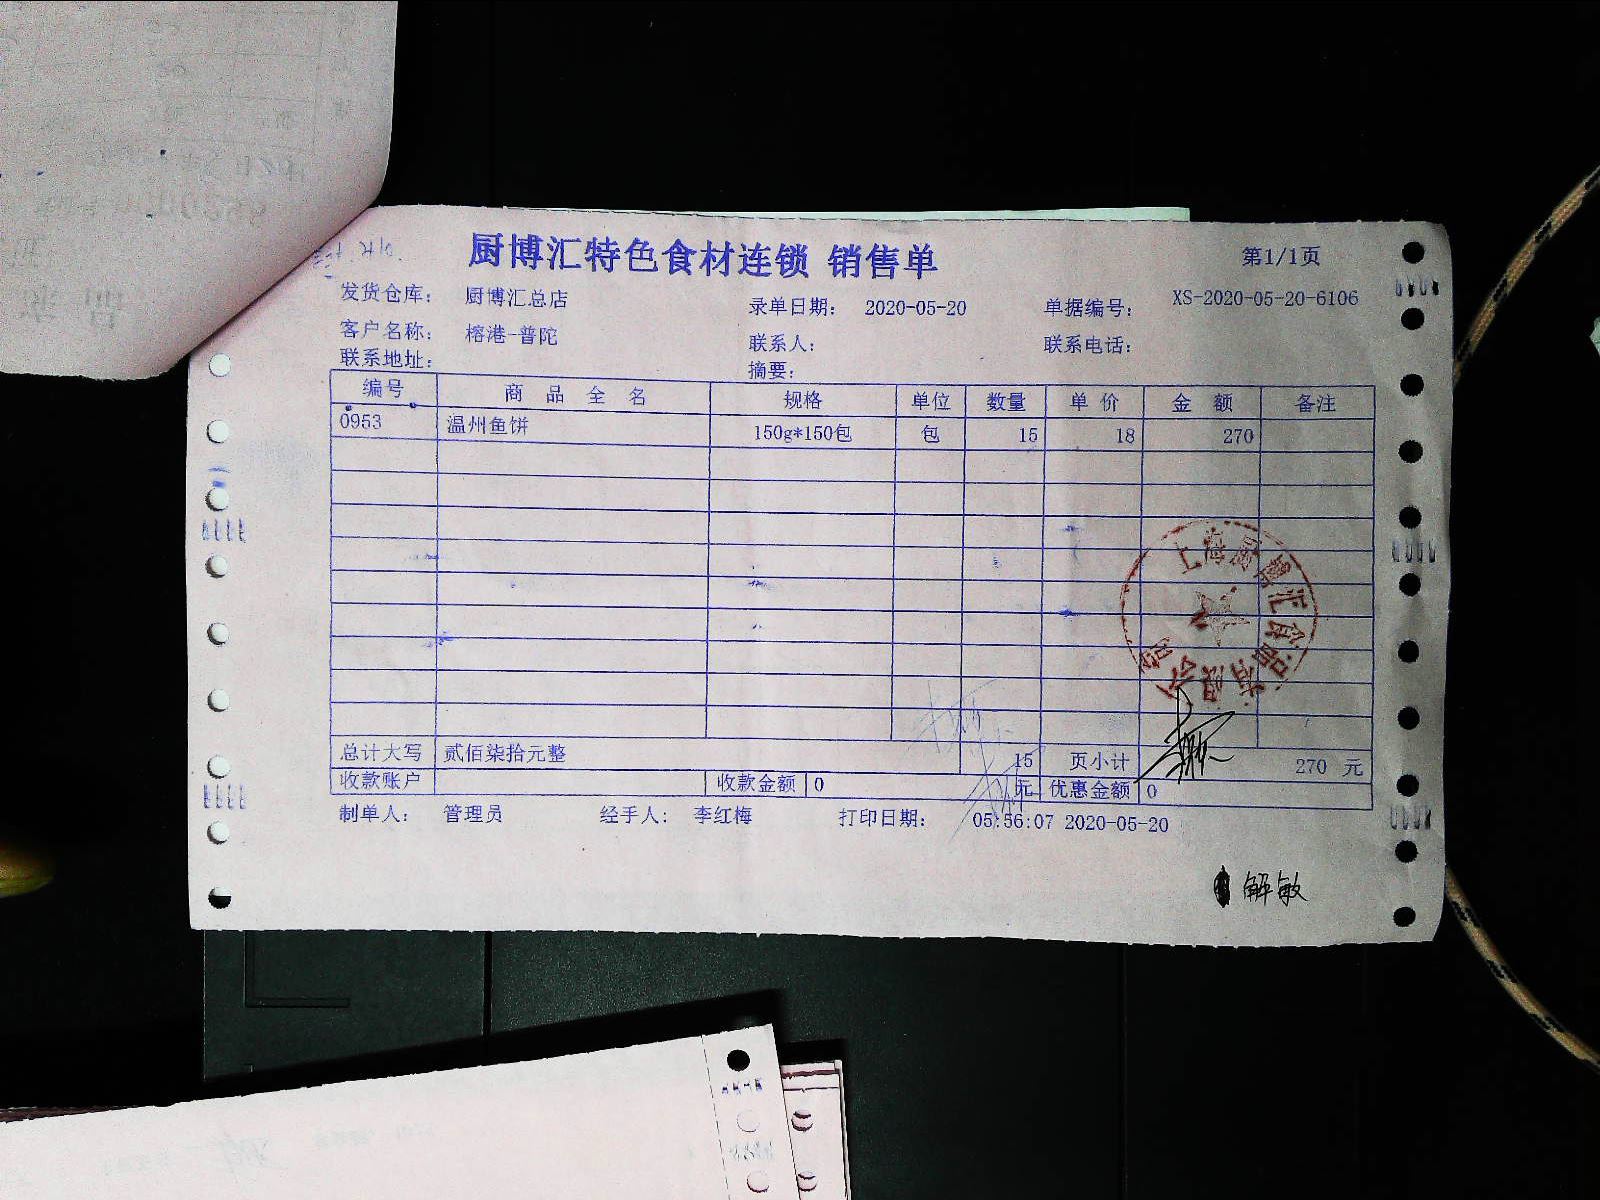 厨博汇特色食材连锁 销售单
第1/1页
发货仓库: 厨博汇总店 录单日期: 2020-05-20 单据编号: XS-2020-05-20-6106
客户名称: 榕港-普陀 联系人: 联系电话:
联系地址: 摘要:
编号 商品全名 规格 单位 数量 单价 金额 备注
0953 温州鱼饼 150g*150包 包 15 18 270
上海厨博汇食品有限公司
总计大写 贰佰柒拾元整 15 页小计 270 元
收款账户 收款金额 0 元 优惠金额 0
制单人: 管理员 经手人: 李红梅 打印日期: 05:56:07 2020-05-20
解敏